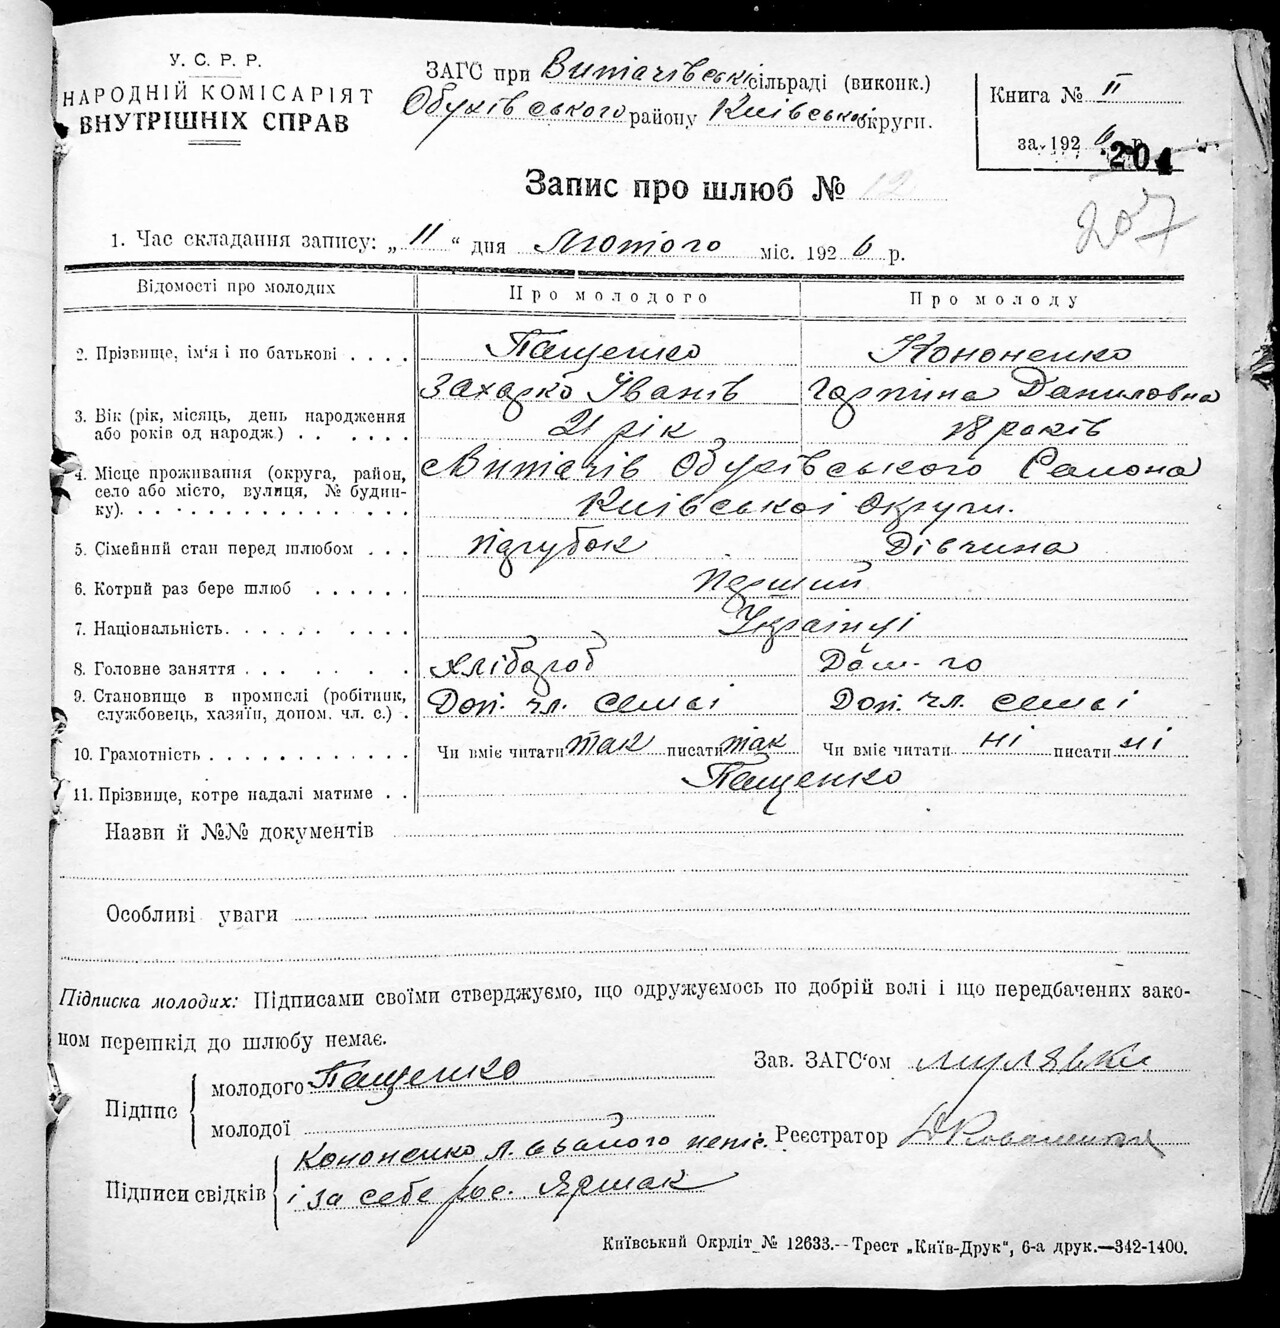 У. С. Р. Р.
НАРОДНІЙ КОМІСАРІЯТ
ВНУТРІШНІХ СПРАВ
ЗАГС при Витачівські сільраді (виконк.)
Обухівського району Київської округи.
Книга № II
за 1926 р.
204
207
Запис про шлюб № 12
1. Час складання запису: „11“ дня Лютого міс. 1926 р.
Відомості про молодих Про молодого Про молоду
2. Прізвище, ім'я і по батькові . . . . Пащенко Кононенко
Захарко Іванів Гарпина Даниловна
3. Вік (рік, місяць, день народження
або років од народж.) . . . . . . 21 рік 18 років
4. Місце проживання (округа, район,
село або місто, вулиця, № будин-
ку). . . . . . . . . . . . . . .
Витачів Обухівського Района
Київської Округи.
5. Сімейний стан перед шлюбом . . . парубок Дівчина
6. Котрий раз бере шлюб . . . . . . Перший
7. Національність. . . . . . . . . . Українці
8. Головне заняття . . . . . . . . Хлібороб Дом. го
9. Становище в промислі (робітник,
службовець, хазяїн, допом. чл. с.) . Доп. чл. семьі Доп. чл. семьі
10. Грамотність . . . . . . . . . . . . Чи вміє читати так писати так Чи вміє читати ні писати ні
11. Прізвище, котре надалі матиме . . Пащенко
Назви й №№ документів
Особливі уваги
Підписка молодих: Підписами своїми стверджуємо, що одружуємось по добрій волі і що передбачених зако-
ном перешкід до шлюбу немає.
Підпис
молодого Пащенко
молодої
Зав. ЗАГС'ом
Реєстратор
Підписи свідків
Кононенко
і за себе рос. Ярмак
Київський Окрліт № 12633.—Трест „Київ-Друк“, 6-а друк.—342-1400.